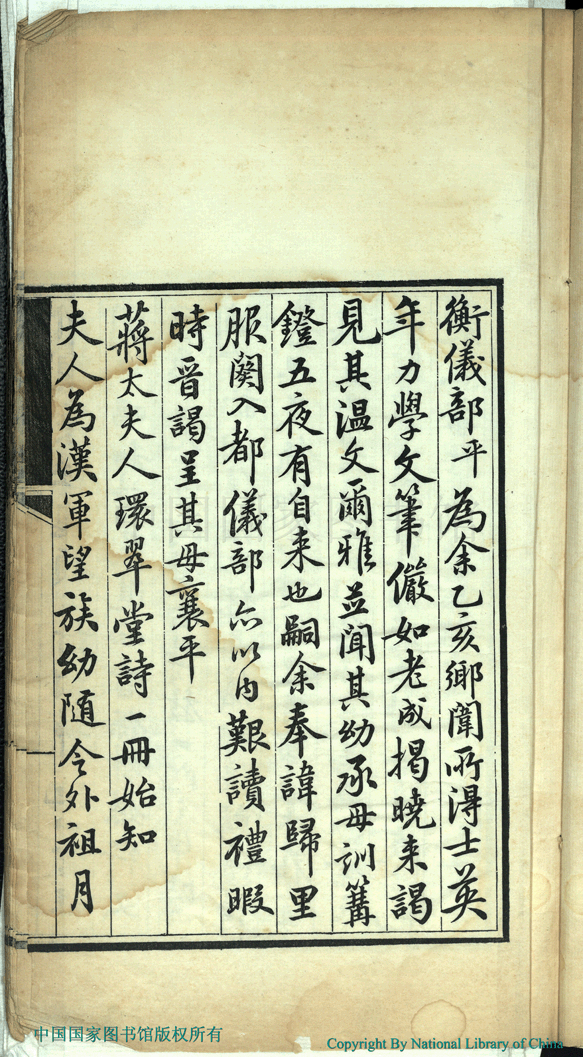 衡儀部平為余乙亥鄉闈所得士英
年力學文筆儼如老成揭曉来謁
見其温文爾雅並聞其幼承母訓篝
鐙五夜有自来也嗣余奉諱歸里
服闋入都儀部亦以内艱讀禮暇
時晋謁呈其母襄平
蔣太夫人環翠堂詩一冊始知
夫人為漢軍望族幼随令外祖月
中国国家图书馆版权所有
Copyright By National Library of China